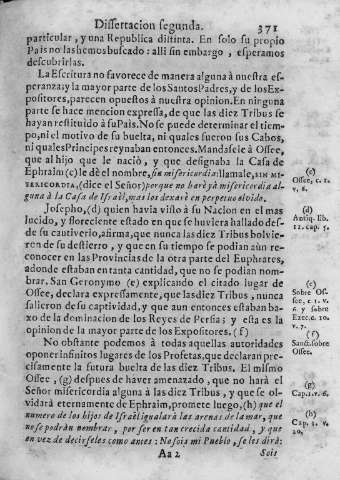 Dissertacion segunda. 371
particular, y una Republica distinta. En solo su propio
Pais no las hemos buscado: alli sin embargo, esperamos
descubrirlas.
La Escritura no favorece de manera alguna à nuestra es-
peranza: y la mayor parte de los Santos Padres, y de los Ex-
positores, parecen opuestos à nuestra opinion. En ninguna
parte se hace mencion expressa, de que las diez Tribus se
hayan restituìdo à su Pais. No se puede determinar el tiem-
po, ni el motivo de su buelta, ni quales fueron sus Cabos,
ni quales Principes reynaban entonces. Mandasele à Ossee,
que al hijo que le naciò, y que designaba la Casa de
Ephraim (c) le dè el nombre, sin misericordia: llamale, SIN MI-
SERICORDIA, (dice el Señor) porque no harè yà misericordia al-
guna à la Casa de Israèl, mas los dexarè en perpetuo olvido.
Josepho, (d) quien havia visto à su Nacion en el mas
lucido, y floreciente estado en que se huviera hallado des-
de su cautiverio, afirma, que nunca las diez Tribus bolvie-
ron de su destierro, y que en su tiempo se podian aùn re-
conocer en las Provincias de la otra parte del Euphrates,
adonde estaban en tanta cantidad, que no se podian nom-
brar. San Geronymo (e) explicando el citado lugar de
Ossee, declara expressamente, que las diez Tribus, nunca
salieron de su captividad, y que aun entonces estaban ba-
xo de la dominacion de los Reyes de Persia; y esta es la
opinion de la mayor parte de los Expositores. (f)
No obstante podemos à todas aquellas autoridades
oponer infinitos lugares de los Profetas, que declaran pre-
cisamente la futura buelta de las diez Tribus. El mismo
Ossee, (g) despues de haver amenazado, que no harà el
Señor misericordia alguna à las diez Tribus, y que se ol-
vidarà eternamente de Ephraim, promete luego, (h) que el
numero de los hijos de Israèl igualarà las arenas de la mar, que
no se podràn nombrar, por ser en tan crecida cantidad, y que
en vez de decirseles como antes: No sois mi Pueblo, se les dirà:
Aa 2 Sois
(c)
Ossee, c. 1.
v. 6.
(d)
Antiq. lib.
11. cap. 5.
(e)
Sobre Os-
see, c. 1. v.
6. y sobre
Ezec. c. 10.
v. 7.
(f)
Sanct. sobre
Ossee.
(g)
Cap. 1. v. 6.
(h)
Cap. 1. v.
10.